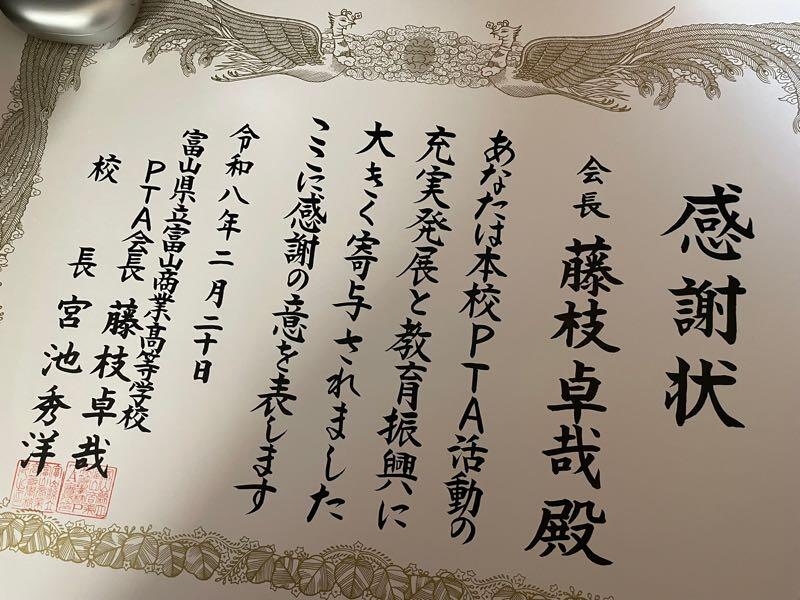 感謝状
会長 藤枝卓哉殿
あなたは本校PTA活動の
充実発展と教育振興に
大きく寄与されました
ここに感謝の意を表します
令和八年二月二十日
富山県立富山商業高等学校
PTA会長 藤枝卓哉
校長 宮池秀洋